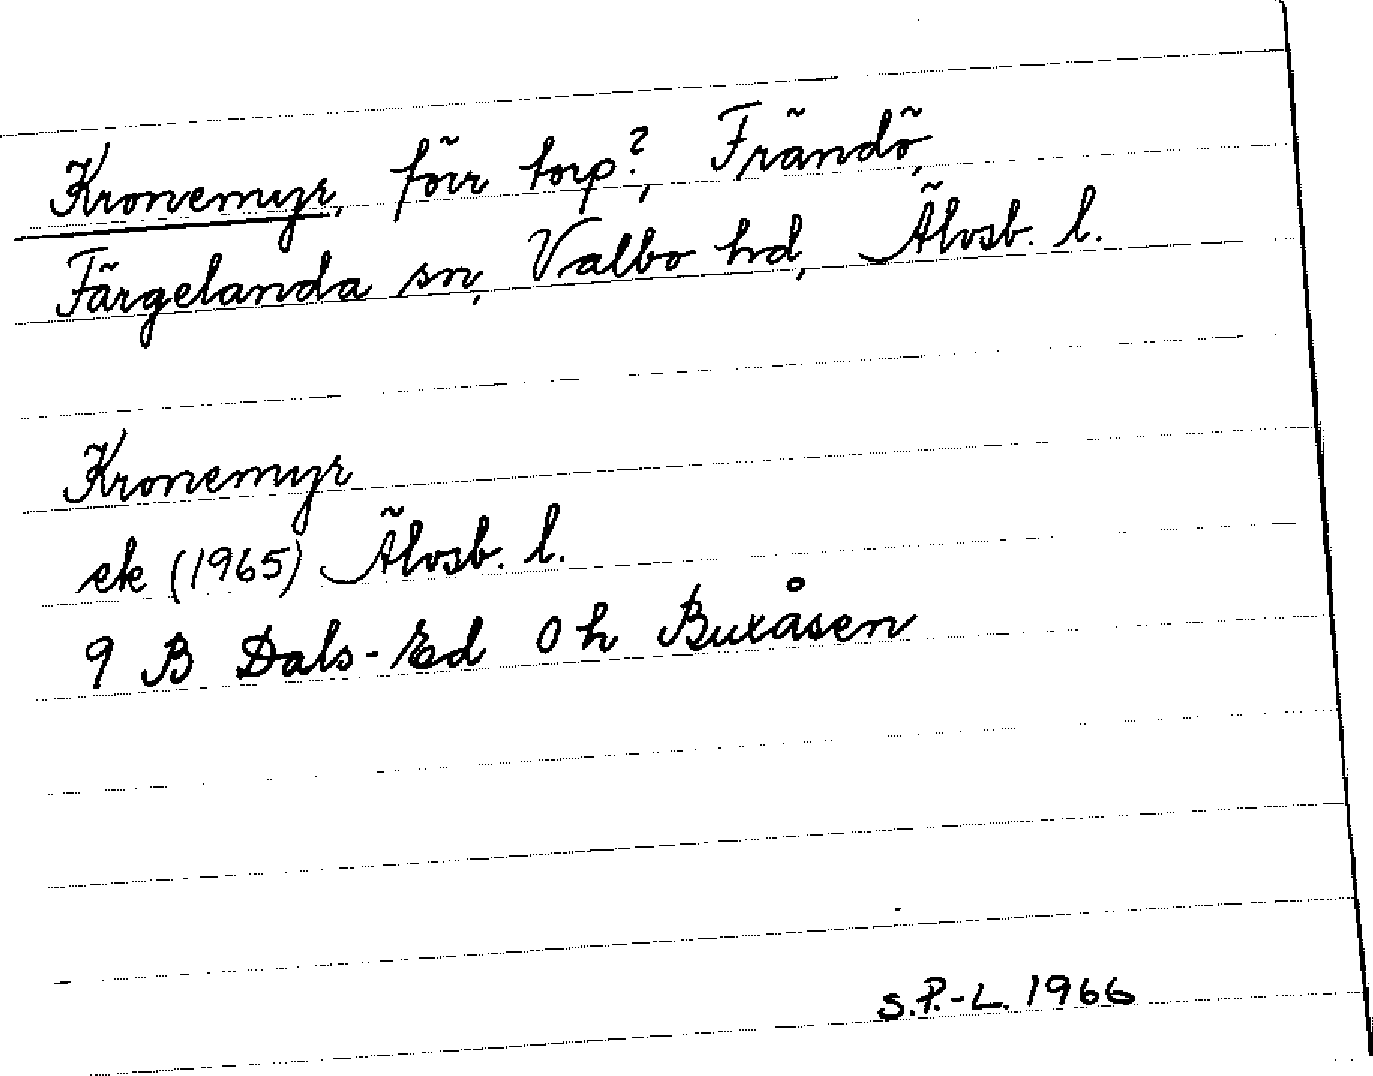 Kronemyr, förr torp?, Frändö,
Färgelanda sn, Valbo hd, Älvsb. l.
Kronemyr
ek (1965) Älvsb. l.
9 B Dals-Ed 0 h Buxåsen
S.P.-L. 1966